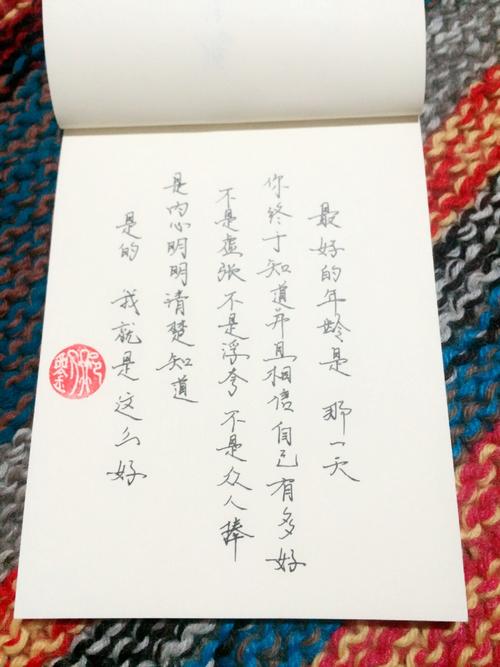 最好的年龄是 那一天
你终于知道并且相信自己有多好
不是虚张 不是浮夸 不是众人捧
是内心明明清楚知道
是的 我就是这么好